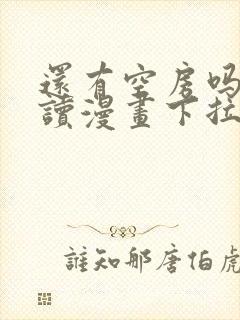 還有空房吗
讀漫畫下拉
誰知那唐伯虎